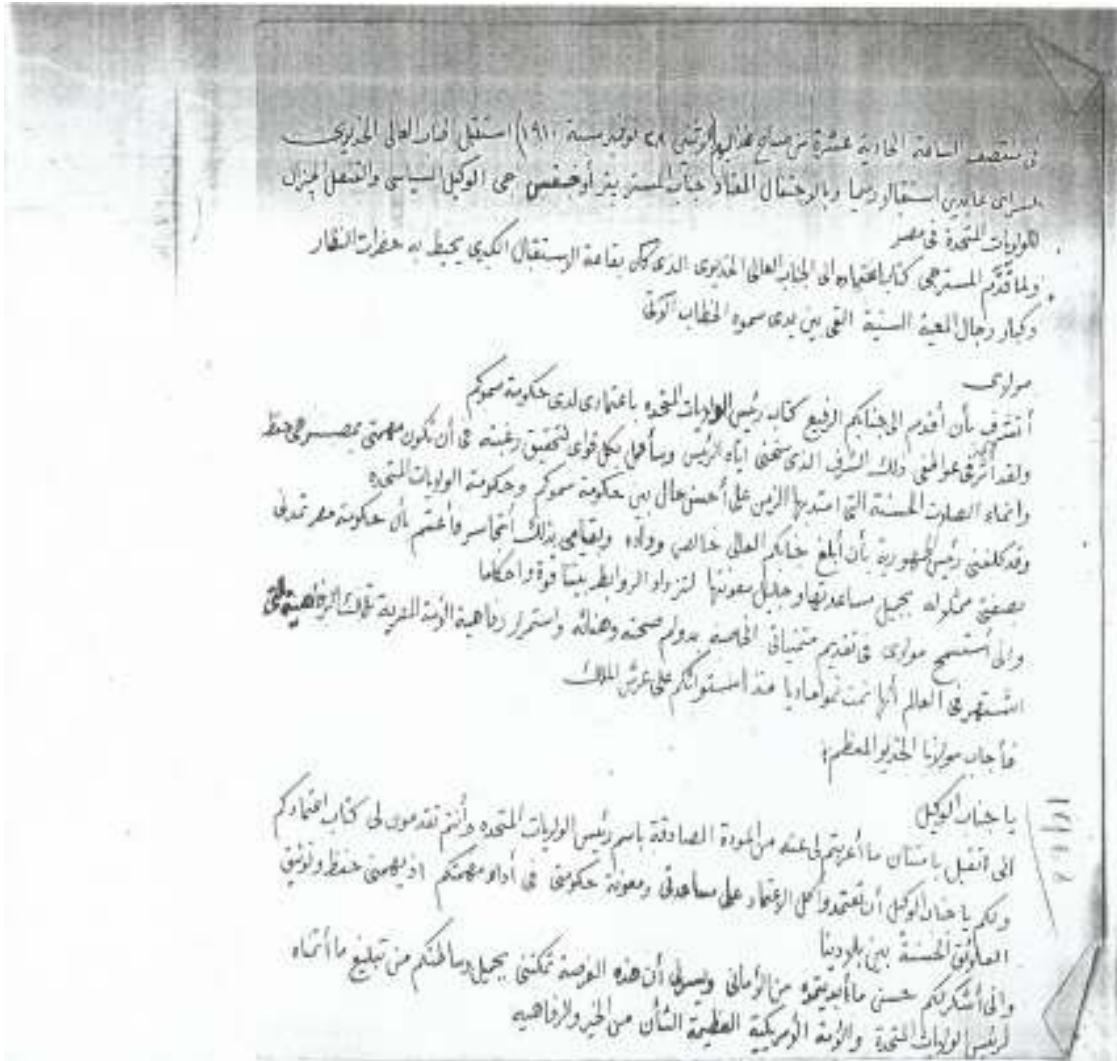 فى منتصف الساعة الحادية عشرة من صباح هذا اليوم (الاثنين ٢٨ نوفمبر سنة ١٩١٠) استقبل الجناب العالى الخديوى
بسراى عابدين استقبالا رسميا وبالاحتفال المعتاد جناب المستر بيتر أوغسطس جى الوكيل السياسى والقنصل الجنرال
للولايات المتحدة فى مصر
ولما قدّم المستر جى كتاب اعتماده الى الجناب العالى الخديوى الذى كان بقاعة الاستقبال الكبرى يحيط به حضرات النظار
وكبار رجال المعية السنية القى بين يدى سموه الخطاب الآتى
مولاى
أتشرف بأن أقدم الى جنابكم الرفيع كتاب رئيس الولايات المتحدة باعتمادى لدى حكومة سموكم
ولقد أثر فى عواطفى ذلك الشرف الذى منحنى اياه الرئيس وسأعمل بكل قواى لتحقيق رغبته فى أن تكون مهمتى بمصر هى حفظ
وانماء الصلات الحسنة التى امتد بها الزمن على أحسن حال بين حكومة سموكم وحكومة الولايات المتحدة
وقد كلفنى رئيس الجمهورية بأن أبلغ جنابكم العالى خالص وداده ولقيامى بذلك أتجاسر وأعشم بأن حكومة مصر تمدنى
بصفتى ممثلا له بجميل مساعدتها وجليل معونتها لتزداد الروابط بيننا قوة واحكاما
وانى أستسمح مولاى فى تقديم متمنياتى الخالصة بدوام صحته وهنائه واستمرار رفاهية الأمة المصرية تلك الرفاهية التى
اشتهر فى العالم أنها نمت نموا ماديا منذ استوائكم على عرش الملك
فأجاب مولانا الخديو المعظم:
يا جناب الوكيل
انى اتقبل بامتنان ما أعربتم لى عنه من المودة الصادقة باسم رئيس الولايات المتحدة وأنتم تقدمون لى كتاب اعتمادكم
ولكم يا جناب الوكيل أن تعتمدوا كل الاعتماد على مساعدتى ومعونة حكومتى فى أداء مهمتكم اذ يهمنى حفظ وتوثيق
العلائق الحسنة بين بلادينا
وانى أشكر لكم حسن ما أبديتموه من الأمانى ويسرنى أن هذه الفرصة تمكننى بجميل وساطتكم من تبليغ ما أتمناه
لرئيس الولايات المتحدة والأمة الأمريكية العظيمة الشأن من الخير والرفاهية